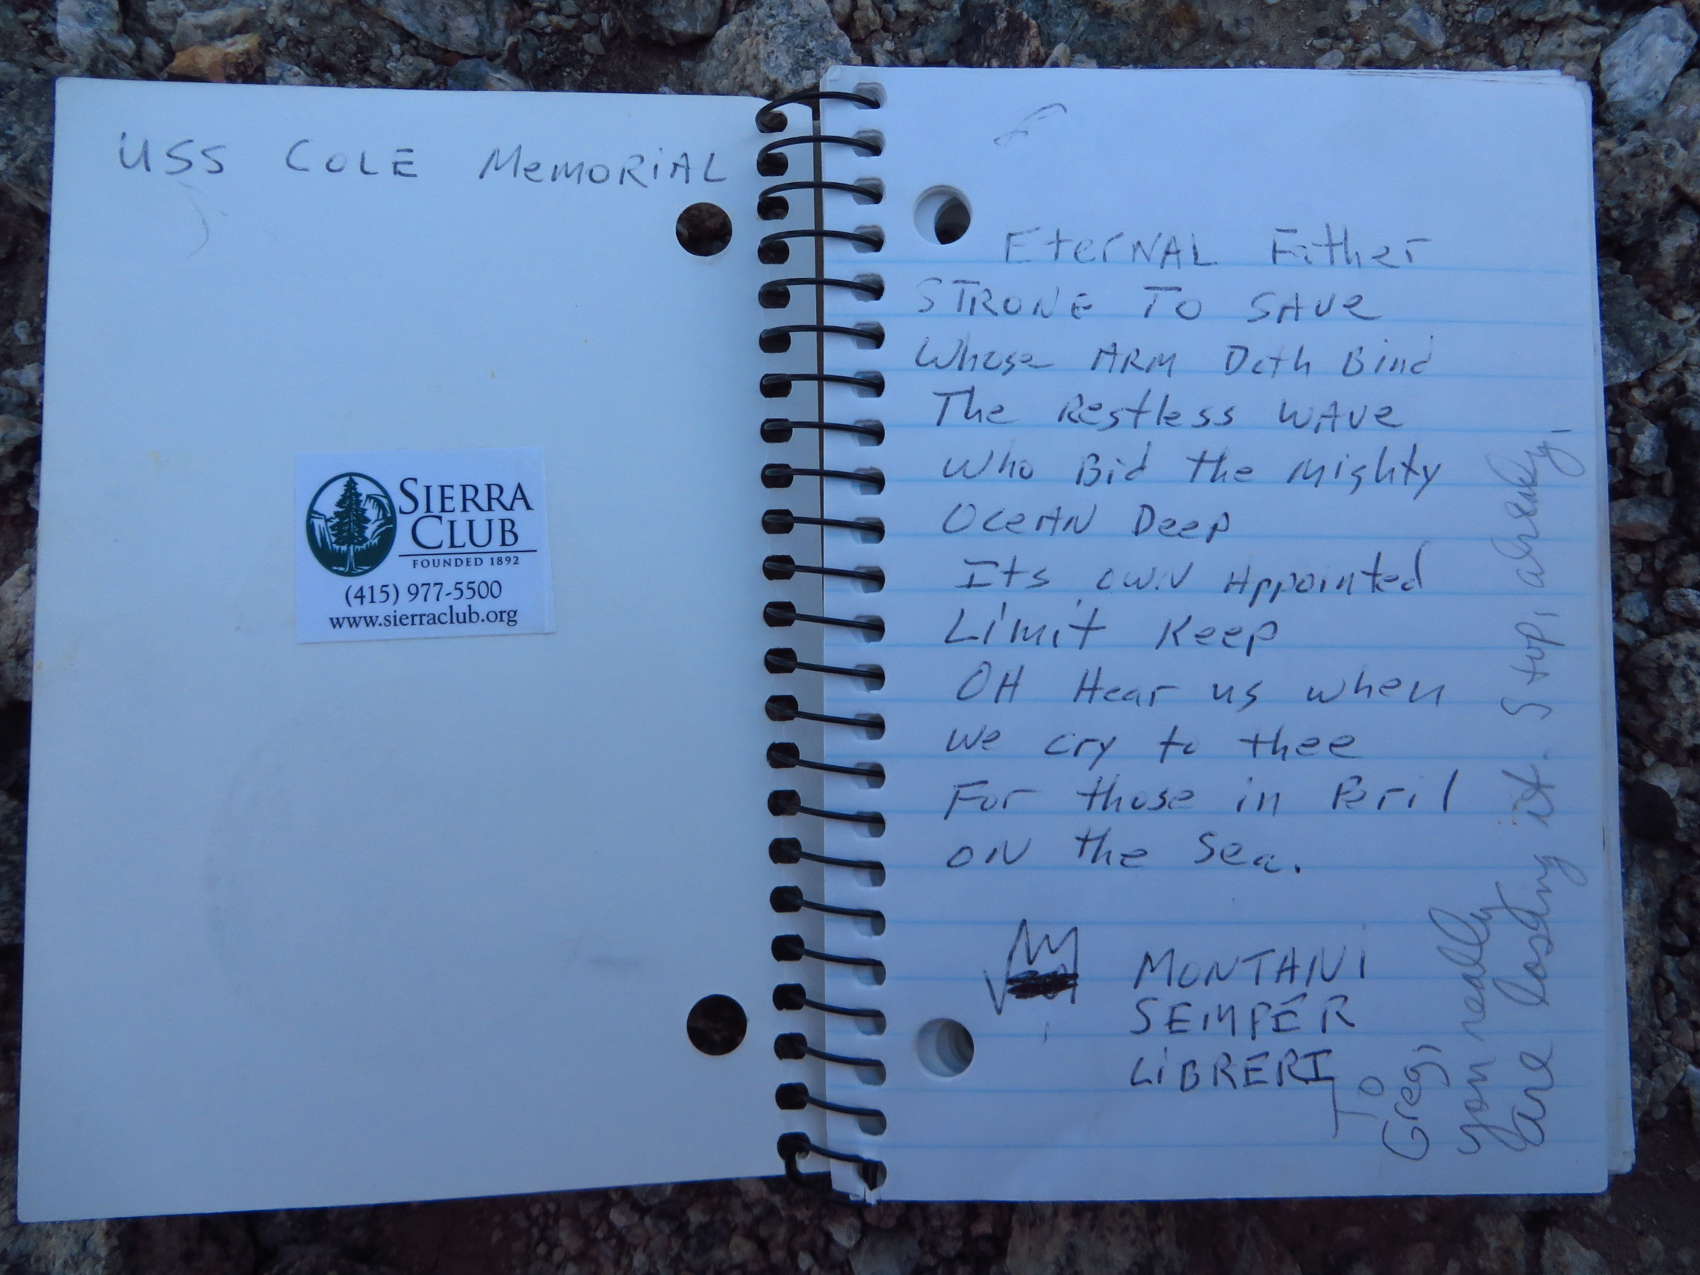 USS COLE MEMORIAL
SIERRA
CLUB
FOUNDED 1892
(415) 977-5500
www.sierraclub.org
EterNAL Father
STRONG TO SAVe
Whose ARM Doth Bind
The Restless WAVe
Who Bid the Mighty
OceAN Deep
Its OWN Appointed
Limit Keep
OH Hear us when
We cry to thee
For those in Peril
ON the Sea.
MONTANI
SEMPER
LiBRERI
To
Greg,
you really
are losing it. Stop, already.